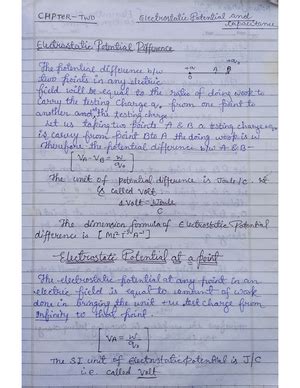 CHAPTER-TWO
Electrostatic Potential and
Capacitance
Electrostatic Potential Difference
The potential difference b/w
two points in any electric
field will be equal to the ratio of doing work to
carry the testing charge q₀ from one point to
another and the testing charge.
Let us taking two Points A & B a testing charge q₀
is carry from Point B to A the doing work is W
Therefore the potential difference b/w A & B-
VA - VB = W/q₀
The unit of potential difference is Joule/C.
is called Volt.
1 Volt = Joule/C
The dimension formula of Electrostatic Potential
difference is [ML²T⁻³A⁻¹]
Electrostatic Potential at a point
The electrostatic potential at any point in an
electric field is equal to amount of work
done in bringing the unit +ve test charge from
infinity to that point.
VA = W/q₀
The SI unit of electrostatic potential is J/C
i.e. called Volt